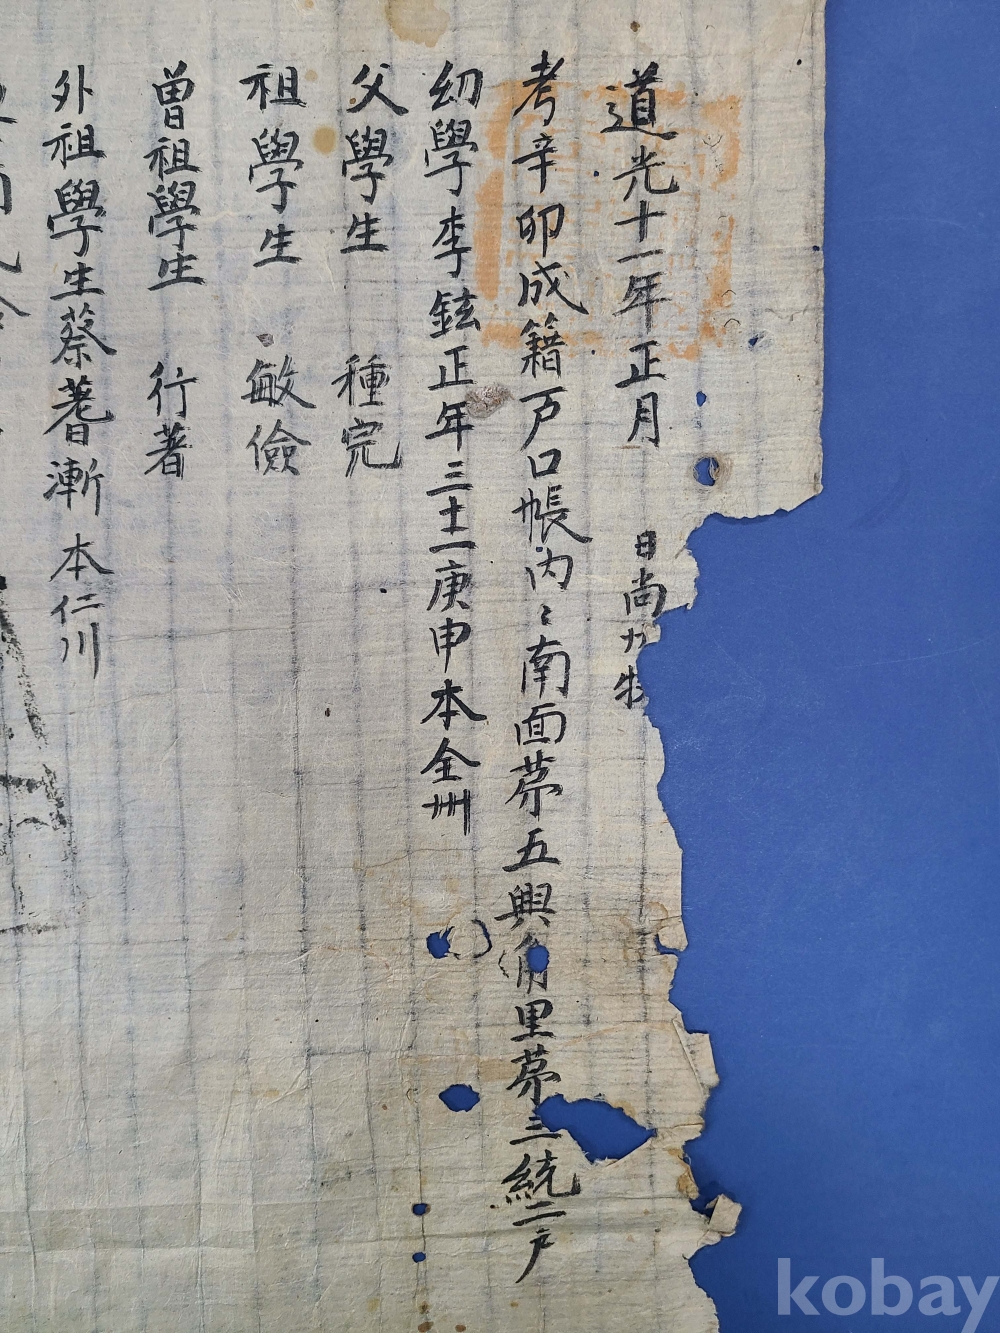 道光十一年正月 日尙州
考辛卯成籍戶口帳內〻南面苐五興角里苐三統二戶
幼學李鉉正年三十二庚申本全州
父學生 種完
祖學生 敏儉
曾祖學生 行著
外祖學生蔡蓍漸 本仁川
kobay